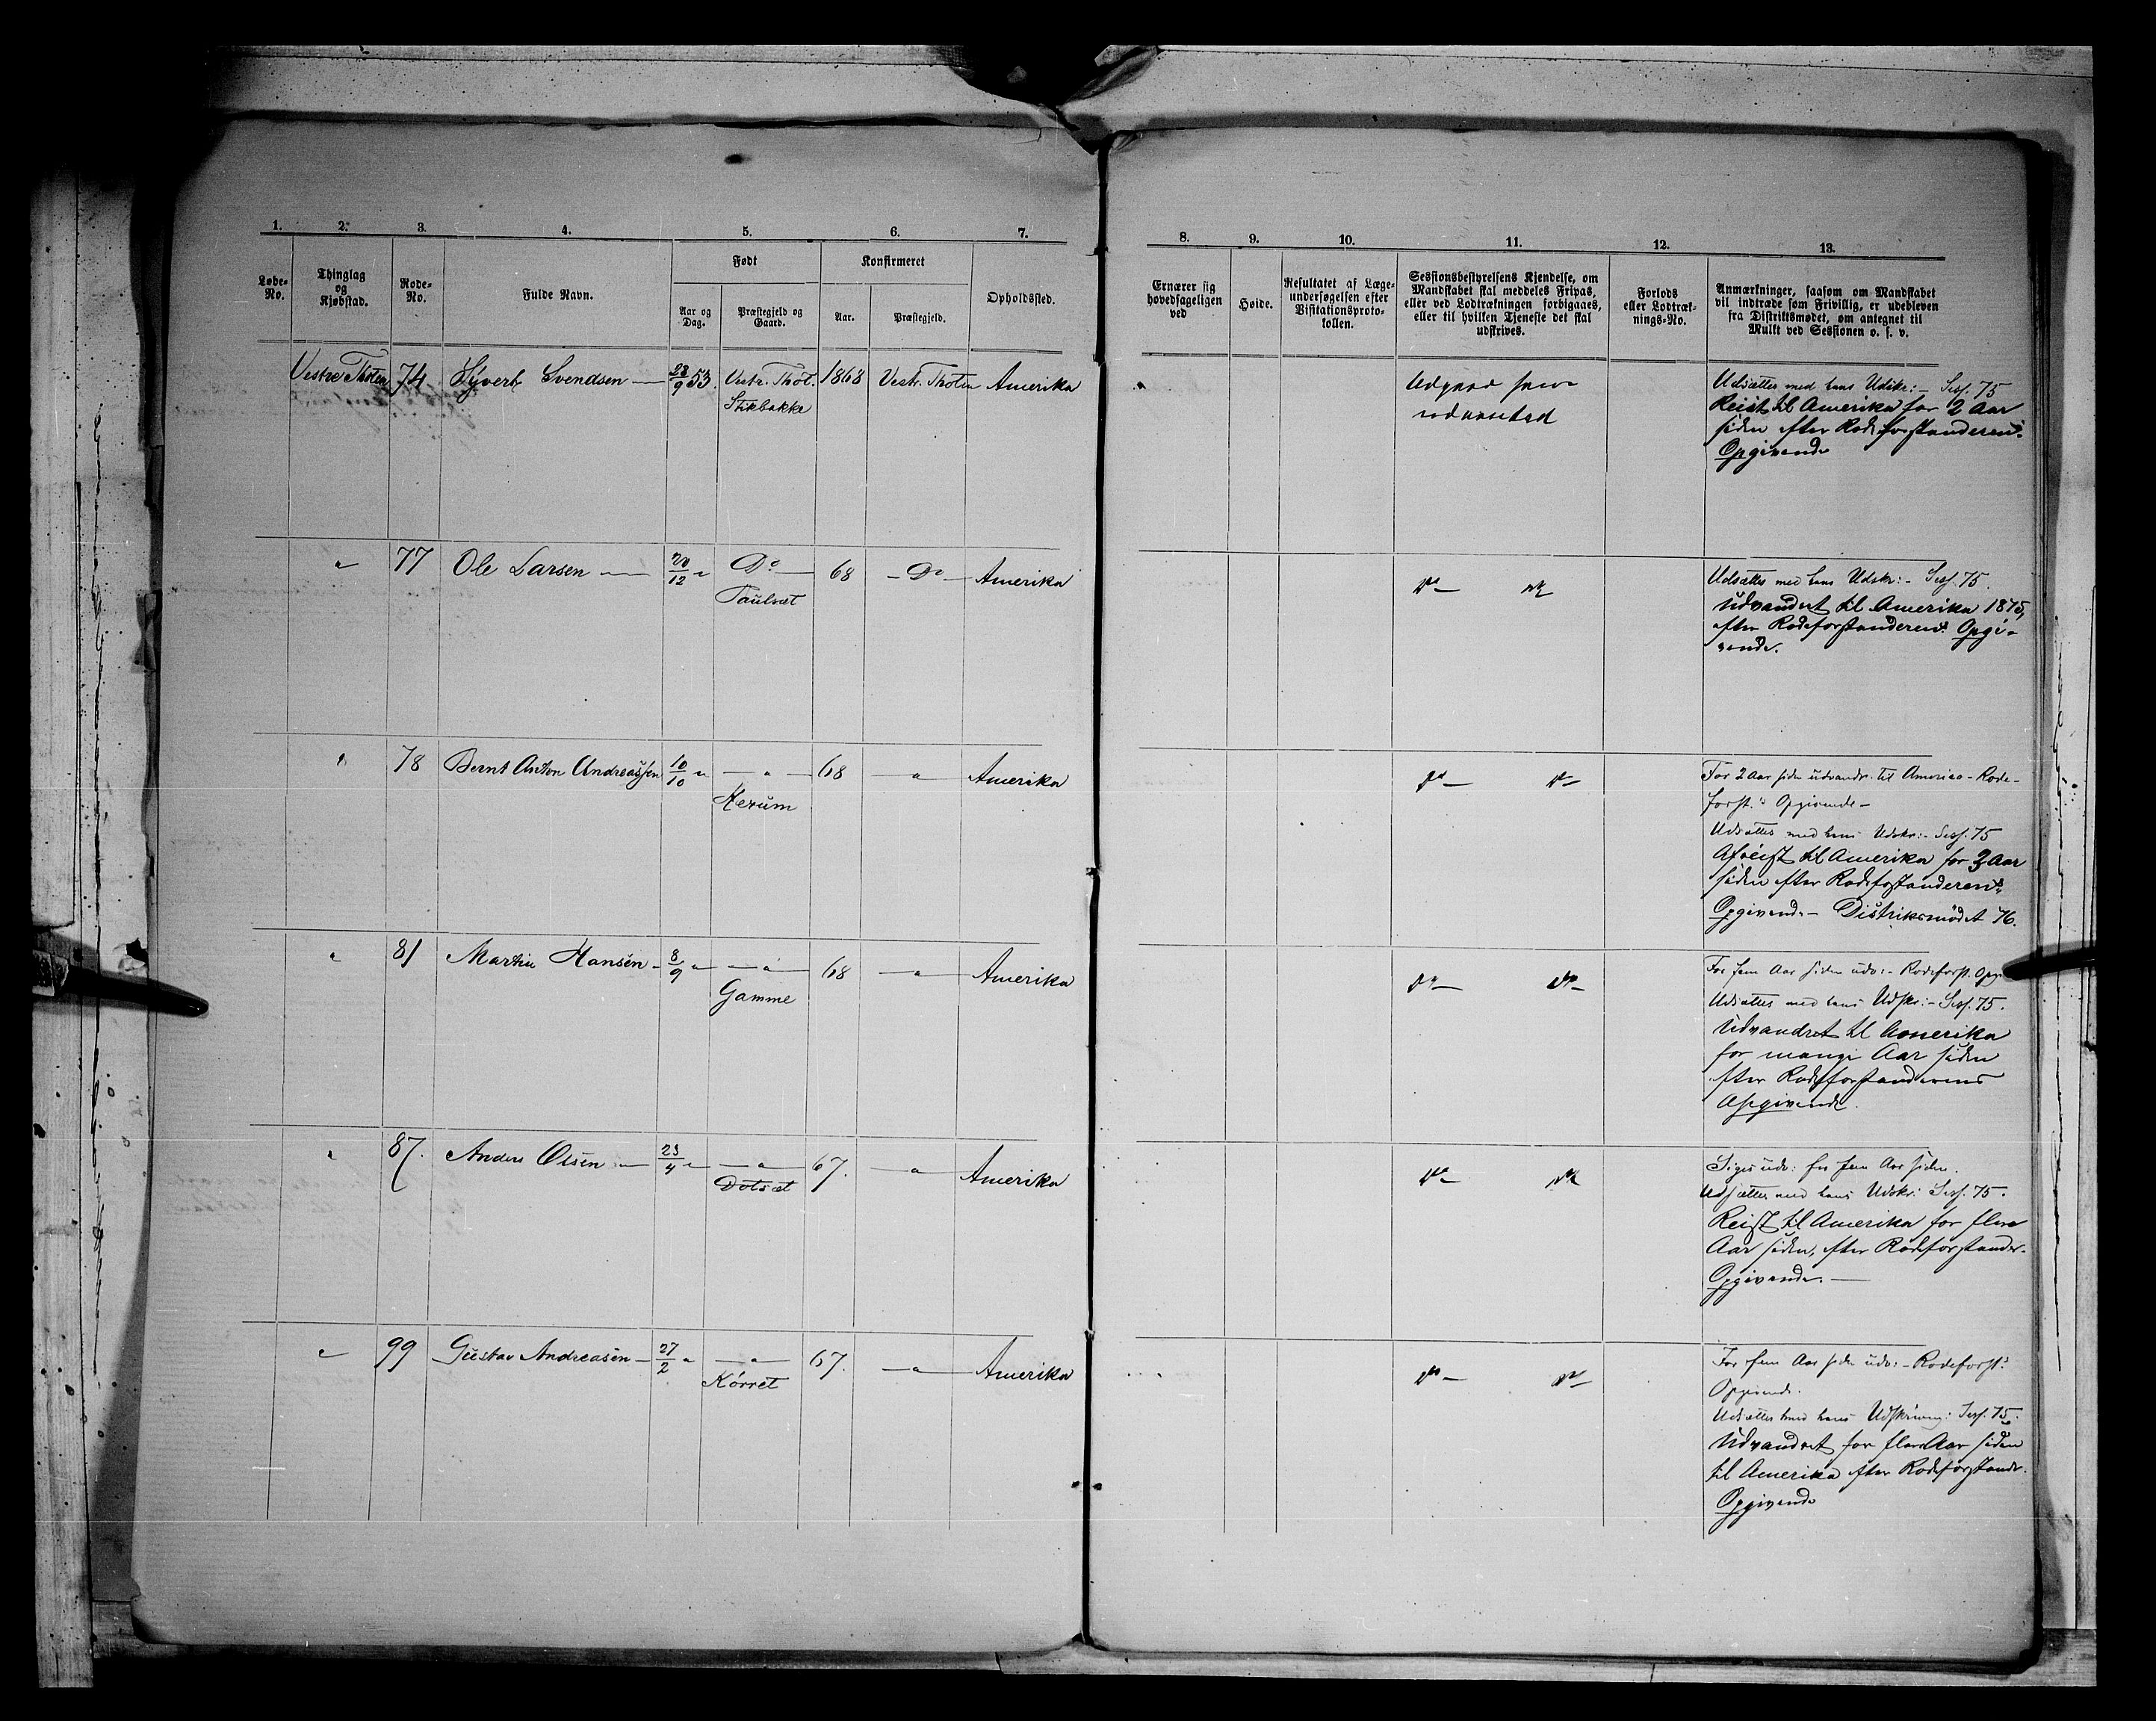 1. 2. 3. 4. 5. 6. 7.
Løbe-No. Thinglag og Kjøbstad. Rode-No. Fulde Navn. Født Konfirmeret Opholdssted.
Aar og Dag. Præstegjeld og Gaard. Aar. Præstegjeld.
Vestre Thoten 74 Syvert Svendsen — 23/9 53. Vestr. Thot. 1868 Vestr. Thoten Amerika
Stikbakke
" 77 Ole Larsen — 20/12 " Do — 68 — Do — Amerika
Paulsæt
" 78 Bernt Anton Andreassen 10/10 " — " — 68 — " — Amerika
Hexum
" 81 Martin Hansen — 8/9 " — " — 68 — " — Amerika
Gamme
" 87. Anders Olsen — 23/4 " — " — 67. — " — Amerika
Dotsæt
" 99 Gustav Andreasen — 27/2 " — " — 67. — " — Amerika
Kørret
8. 9. 10. 11. 12. 13.
Ernærer sig hovedsageligen ved
Høide.
Resultatet af Læge-
undersøgelsen efter
Visitationsproto-
kollen.
Sessionsbestyrelsens Kjendelse, om
Mandskabet skal meddeles Fripas,
eller ved Lodtrækningen forbigaaes,
eller til hvilken Tjeneste det skal
udskrives.
Forlods
eller Lodtræk-
nings-No.
Anmærkninger, saasom om Mandskabet
vil indtræde som Frivillig, er udebleven
fra Distriktsmødet, om antegnet til
Mulkt ved Sessionen o. s. v.
Udgaad som
udvandred
Udsættes med hans Udskr: - Sess. 75
Reist til Amerika for 2 Aar
siden efter Rodeforstanderens
Opgivende
Do — Do
Udsættes med hans Udskr: - Sess. 75.
Udvandret til Amerika 1875,
efter Rodeforstanderens Opgi-
vende.
Do — Do —
For 2 Aar siden udvandr. til America - Rode-
forst.s Opgivende -
Udsættes med hans Udskr: - Sess. 75
Afreist til Amerika for 3 Aar
siden efter Rodeforstanderens
Opgivende - Distriksmødet 76.
Do — Do —
For fem Aar siden udv: - Rodeforst. Opg
Udsættes med hans Udskr: - Sess. 75.
Udvandret til Amerika
for mange Aar siden
efter Rodeforstanderens
Opgivende.
Do — Do
Siges udv: for fem Aar siden.
Udsættes med hans Udskr: Sess. 75.
Reist til Amerika for flere
Aar siden, efter Rodeforstander.
Opgivende. —
Do — Do —
For fem Aar siden udv: - Rodeforst.s
Opgivende.
Udsættes med hans Udskrivning: Sess. 75.
Udvandret for flere Aar siden
til Amerika efter Rodeforstander.
Opgivende